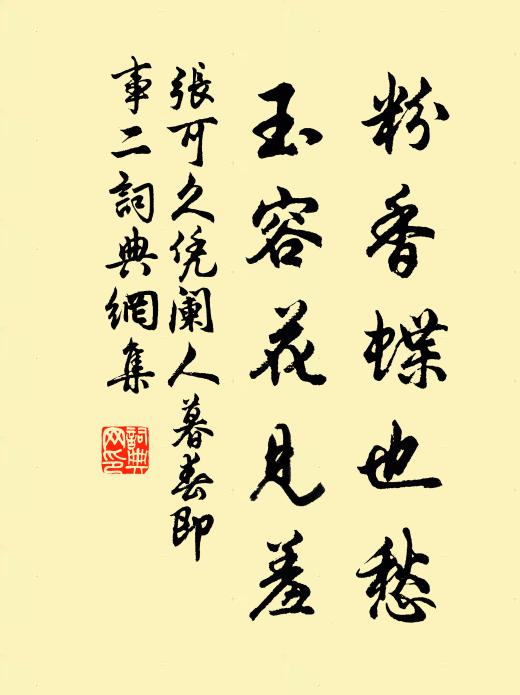 粉香蝶也愁
玉容花見羞
張可久凭阑人暮春即
事二詞典網集
詞典
网印